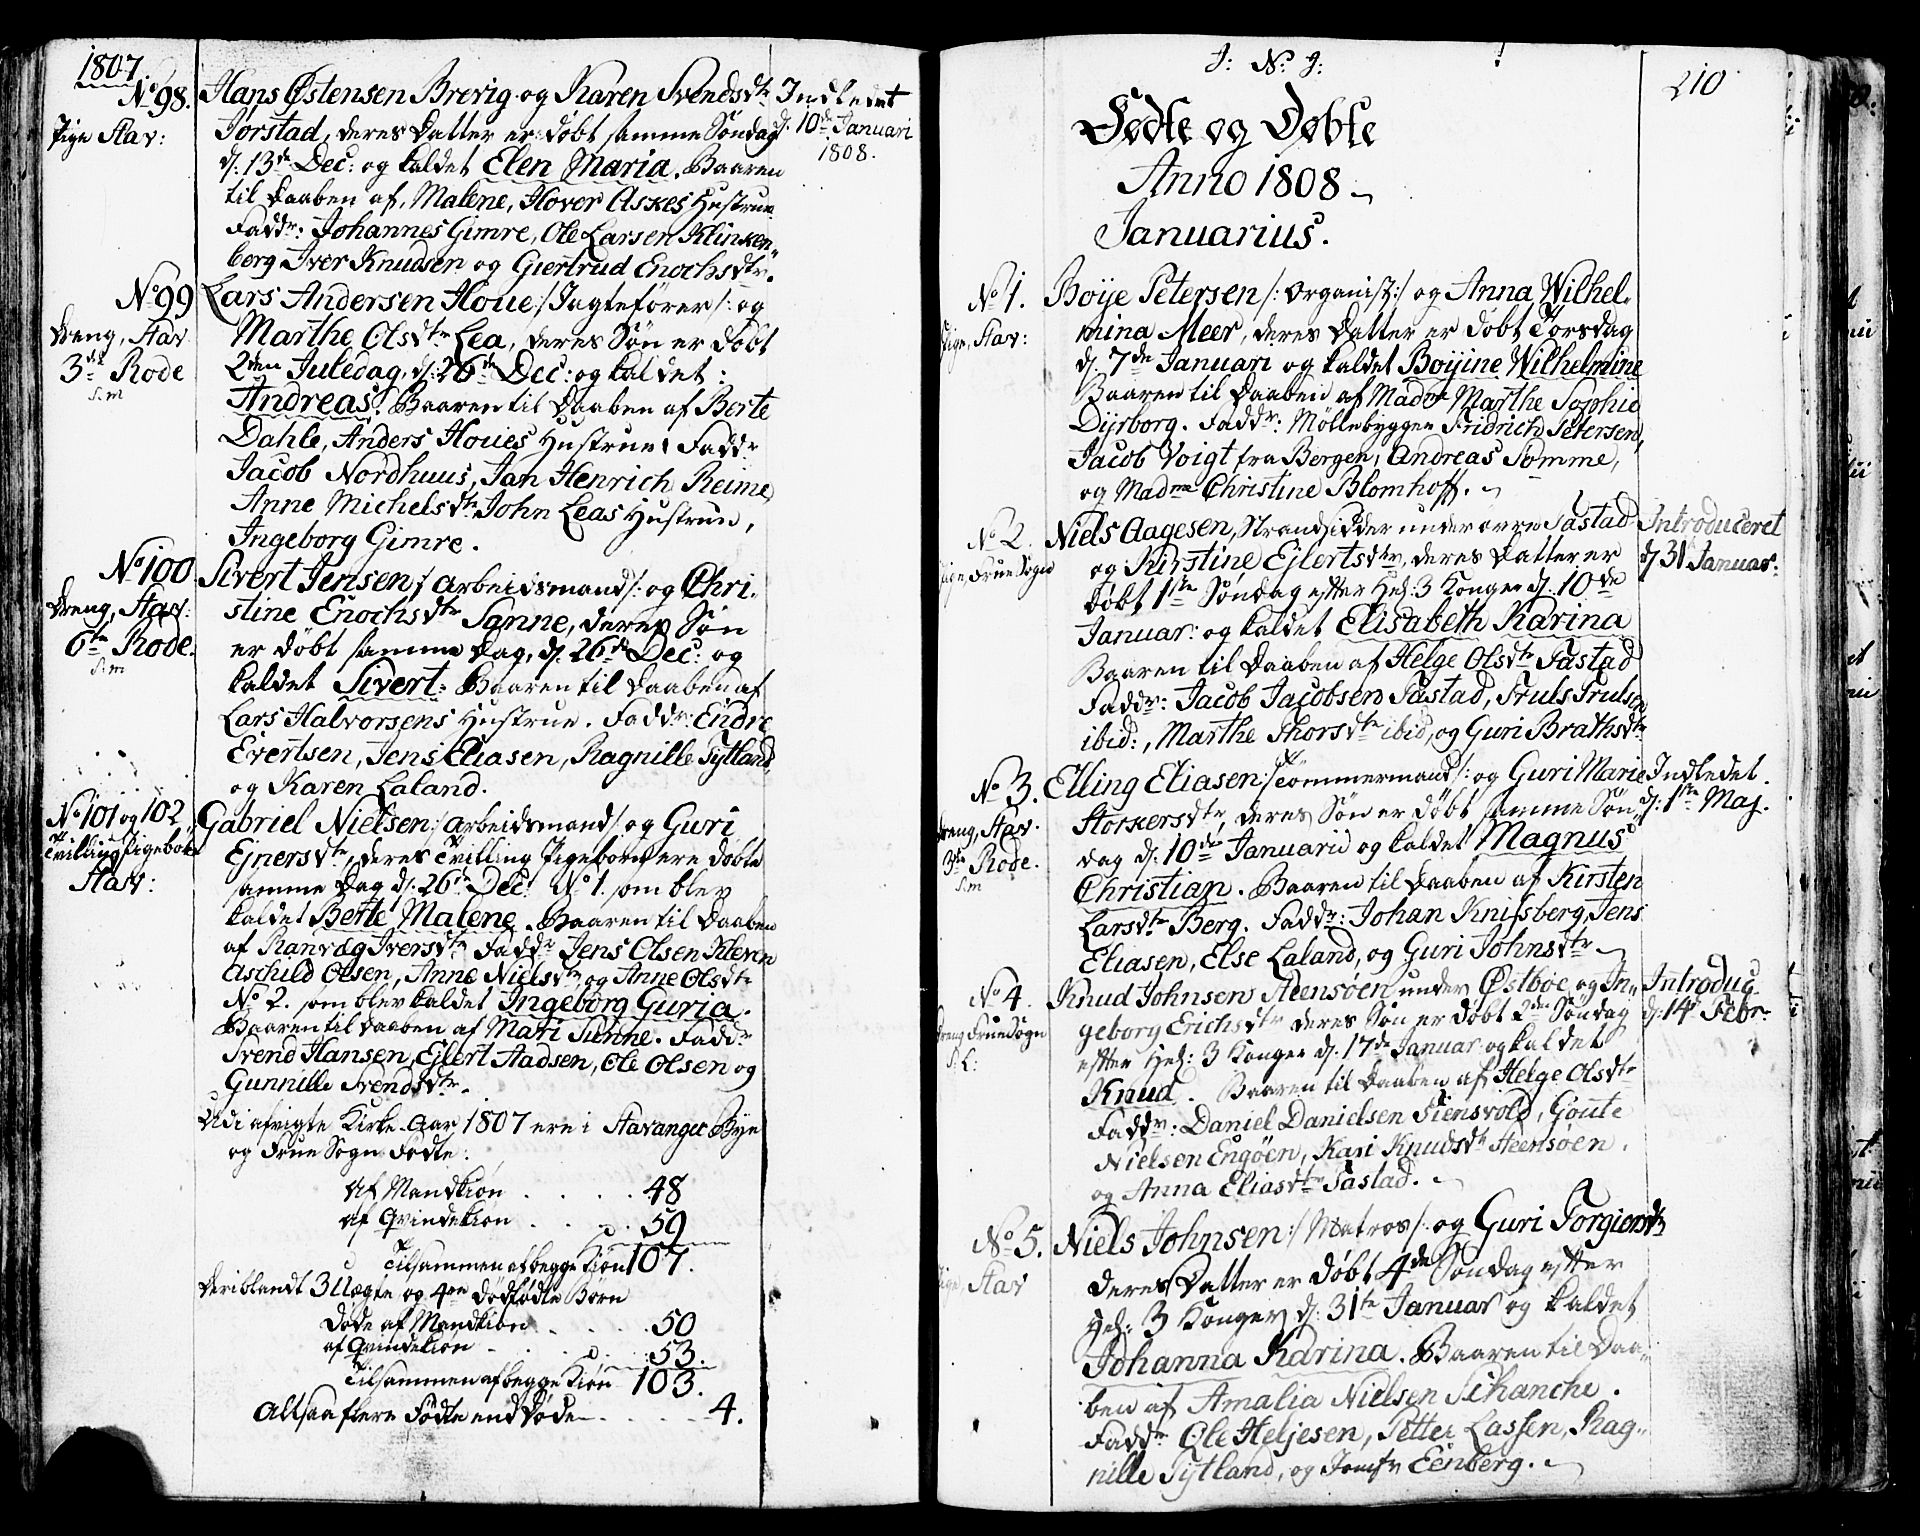 1807
No 98. Hans Østensen Brevig og Karen Svendsdtr Indledet
Pige Stav: Jorstad, deres Datter er døbt samme Søndag d. 10de Januari
d. 13de Dec: og kaldet Elen Maria. Baaren 1808.
til Daaben af, Malene, Hover Askes Hustrue
Faddr: Johannes Gimre, Ole Larsen Klinken-
berg Iver Knudsen og Giertrud Enochsdtr.
No 99 Lars Andersen Houe /: Jagtefører /: og
Dreng, Stav Marthe Olsdtr Lea, deres Søn er døbt
3die Rode 2den Juledag, d. 26de Dec: og kaldet:
S. m Andreas. Baaren til Daaben af Berte
Dahle, Anders Houes Hustrue: Faddr
Jacob Nordhuus, Jan Henrich Reime,
Anne Michelsdtr John Leas Hustrue,
Ingeborg Gimre.
No 100 Sivert Jensen /: Arbeidsmand /: og Chri-
Dreng, Stav: stine Enochsdtr Sanne, deres Søn
6te Rode. er døbt samme Dag, d. 26de Dec: og
S. m kaldet Sivert. Baaren til Daaben af
Lars Halvorsens Hustrue. Faddr: Endre
Evertsen, Jens Eliasen, Ragnille Tytland,
og Karen Laland.
No 101 og 102 Gabriel Nielsen /: Arbeidsmand /: og Guri
Tvilling Pigebørn Ejnersdtr, deres Tvilling Pigebørn ere døbte
Stav: samme Dag d. 26de Dec: No 1. som blev
kaldet Berte Malene. Baaren til Daaben
af Ranvæg Iversdtr Faddr Jens Olsen Kleven
Aschild Olsen, Anne Nielsdtr og Anne Olsdtr
No 2. som blev kaldet Ingeborg Guria.
Baaren til Daaben af Mari Sunne. Faddr
Svend Hansen, Ejlert Aadsen, Ole Olsen og
Gunnille Svendsdtr.
Udi afvigte Kirke-Aar 1807 ere i Stavanger Bye
og Frue Sogn Fødte:
Af Mandkiøn . . . . 48
af Qvindekiøn . . . . 59
Tilsammen af begge Kiøn 107.
Deriblandt 3 Uægte og 4re dødfødte Børn
Døde af Mandkiøn . . . . 50
af Qvindekiøn . . . . 53.
Tilsammen af begge Kiøn 103.
Altsaa flere Fødte end Døde . . . . 4.
J: N: J:
210
Fødte og Døbte
Anno 1808
Januarius.
No 1. Boÿe Petersen /: Organist :/ og Anna Wilhel-
Pige, Stav: mina Meer, deres Datter er døbt Torsdag
d. 7de Januari og kaldet Boÿine Wilhelmine
Baaren til Daaben af Madme Marthe Sophia
Dÿrborg. Faddr: Møllebygger Fridrich Petersen,
Jacob Voigt fra Bergen, Andreas Somme,
og Madme Christine Blomhoff.
No 2. Niels Aagesen, Strandsidder under øvre Tastad Introduceret
Pige, Frue Sogn og Kirstine Ejlertsdtr, deres Datter er d. 31 Januar:
døbt 1ste Søndag efter Hel: 3 Konger d. 10de
Januar: og kaldet Elisabeth Karina
Baaren til Daaben af Helge Olsdtr Tastad
Faddr: Jacob Jacobsen Tastad, Truls Trulsen
ibid:, Marthe Thorsdtr ibid, og Guri Brathsdtr
No 3. Elling Eliasen /: Tømmermand /: og Guri Marie Indledet.
Dreng, Stav. Storkersdtr, deres Søn er døbt samme Søn- d. 1ste Maj.
3die Rode. dag d. 10de Januarii og kaldet Magnus
S. m Christian. Baaren til Daaben af Kirsten
Larsdtr Berg. Faddr: Johan Knifsberg, Jens
Eliasen, Else Laland, og Guri Johnsdtr
No 4. Knud Johnsen Steensøen under Østboe og In- Introduc.
Dreng Frue Sogn geborg Erichsdtr deres Søn er døbt 2den Søndag d. 14de Febr.
S: L: efter Hel: 3 Konger d. 17de Januar og kaldet
Knud. Baaren til Daaben af Helge Olsdtr
Faddr: Daniel Danielsen Tiensvold, Goute
Nielsen Engøen, Kari Knudsdtr Steensøen.
og Anna Eliasdtr Tastad.
No 5. Niels Johnsen /: Matros /: og Guri Torgiersdtr
Pige, Stav deres Datter er døbt 4de Søndag efter
Hel: 3 Konger d. 31te Januar og kaldet
Johanna Karina. Baaren til Daa-
ben af Amalia Nielsen Schanche.
Faddr Ole Heljesen, Petter Lassen, Rag-
nille Tytland, og Jomfr Eenberg.